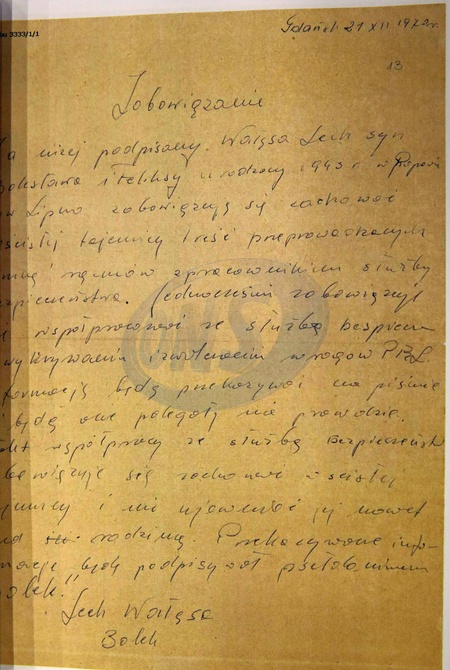 3333/1/1
Gdańsk 21 XII 1970r.
13
Zobowiązanie
niżej podpisany Wałęsa Lech syn
Bolesława i Feliksy urodzony 1943 r. w Popowie
Lipno zobowiązuję się zachować
ścisłej tajemnicy treść przeprowadzonych
rozmów z pracownikiem służby
zpieczeństwa. Jednocześnie zobowiązuję
współpracować ze służbą bezpiecz
wykrywaniu i zwalczaniu wrogów PRL.
formacje będę przekazywał na piśmie
będą one polegały na prawdzie.
kt współpracy ze służbą Bezpieczeńst
bowiązuję się zachować w ścisłej
jemnicy i nie ujawniać jej nawet
rodziną. Przekazywane info-
macje będę podpisywał pseudonimem
olek."
Lech Wałęsa
Bolek